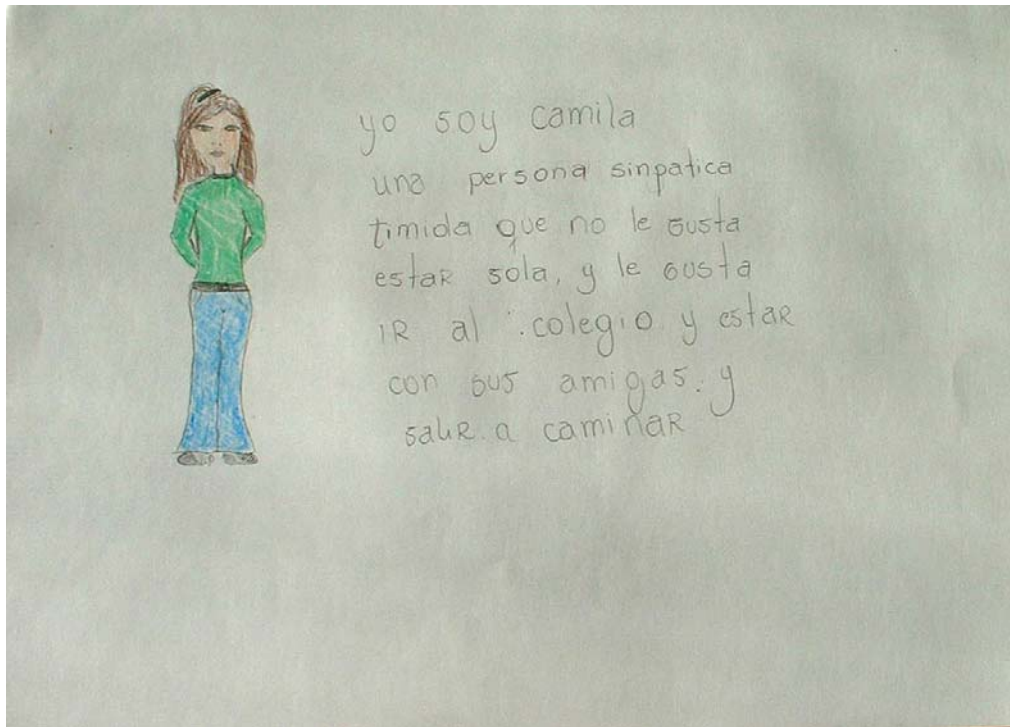 yo soy camila
una persona sinpatica
timida que no le gusta
estaR sola, y le gusta
IR al colegio y estaR
con sus amigas. y
saliR. a caminaR